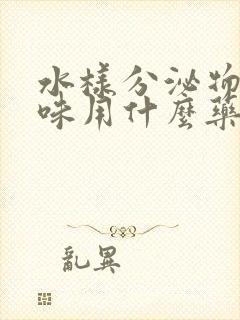 水樣分泌物
味用什麼藥
亂異